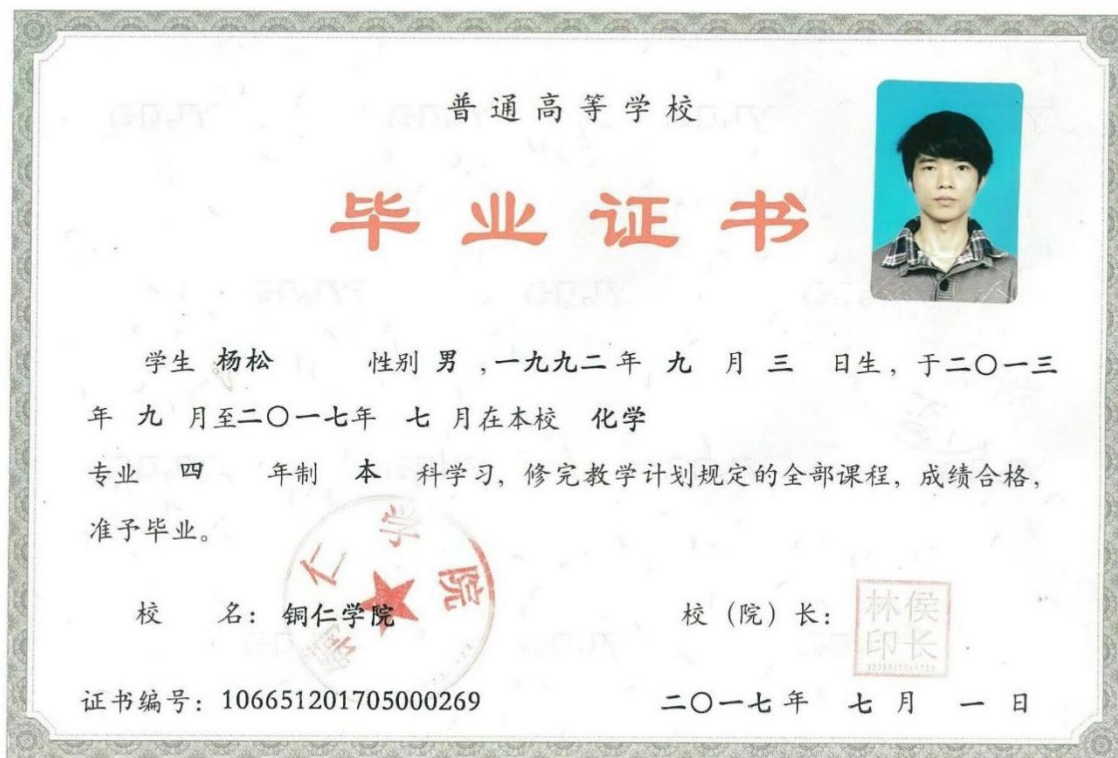 普通高等学校
毕业证书
学生 杨松 性别 男 ,一九九二年 九 月 三 日生, 于二〇一三
年 九 月至二〇一七年 七 月在本校 化学
专业 四 年制 本 科学习, 修完教学计划规定的全部课程, 成绩合格,
准予毕业。
仁学院
校 名: 铜仁学院 校 (院) 长:
林侯
印长
证书编号: 106651201705000269 二〇一七年 七 月 一 日